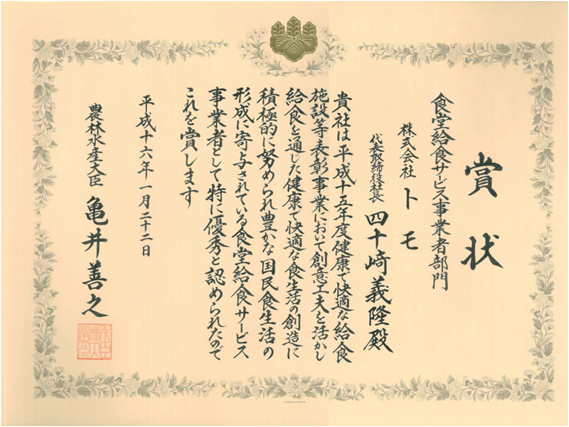 賞状
食堂給食サービス事業者部門
株式会社 トモ
代表取締役社長 四十崎義隆殿
貴社は平成十五年度健康で快適な給食
施設等表彰事業において創意工夫を活かし
給食を通じた健康で快適な食生活の創造に
積極的に努められ豊かな国民食生活の
形成に寄与されている食堂給食サービス
事業者として特に優秀と認められたので
これを賞します
平成十六年一月二十二日
農林水産大臣 亀井善之